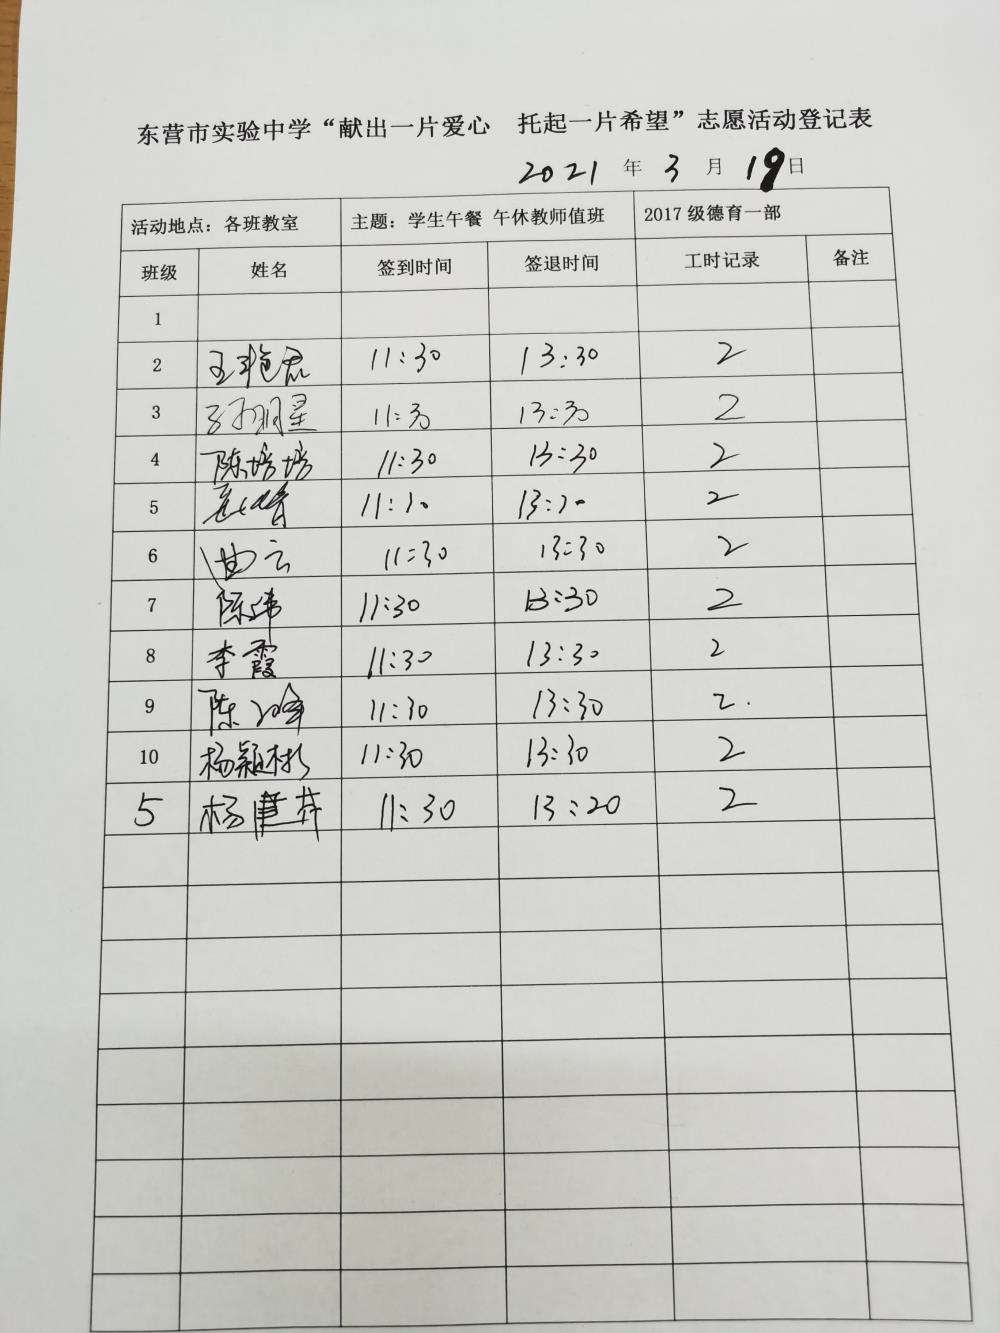 东营市实验中学“献出一片爱心 托起一片希望”志愿活动登记表
2021 年 3 月 19 日
活动地点：各班教室 主题：学生午餐 午休教师值班 2017 级德育一部
班级 姓名 签到时间 签退时间 工时记录 备注
1
2 王艳磊 11:30 13:30 2
3 孙明星 11:30 13:30 2
4 陈培培 11:30 13:30 2
5 11:30 13:30 2
6 曲云 11:30 13:30 2
7 陈炜 11:30 13:30 2
8 李霞 11:30 13:30 2
9 陈 峰 11:30 13:30 2.
10 杨颖彬 11:30 13:30 2
5 杨 11:30 13:20 2